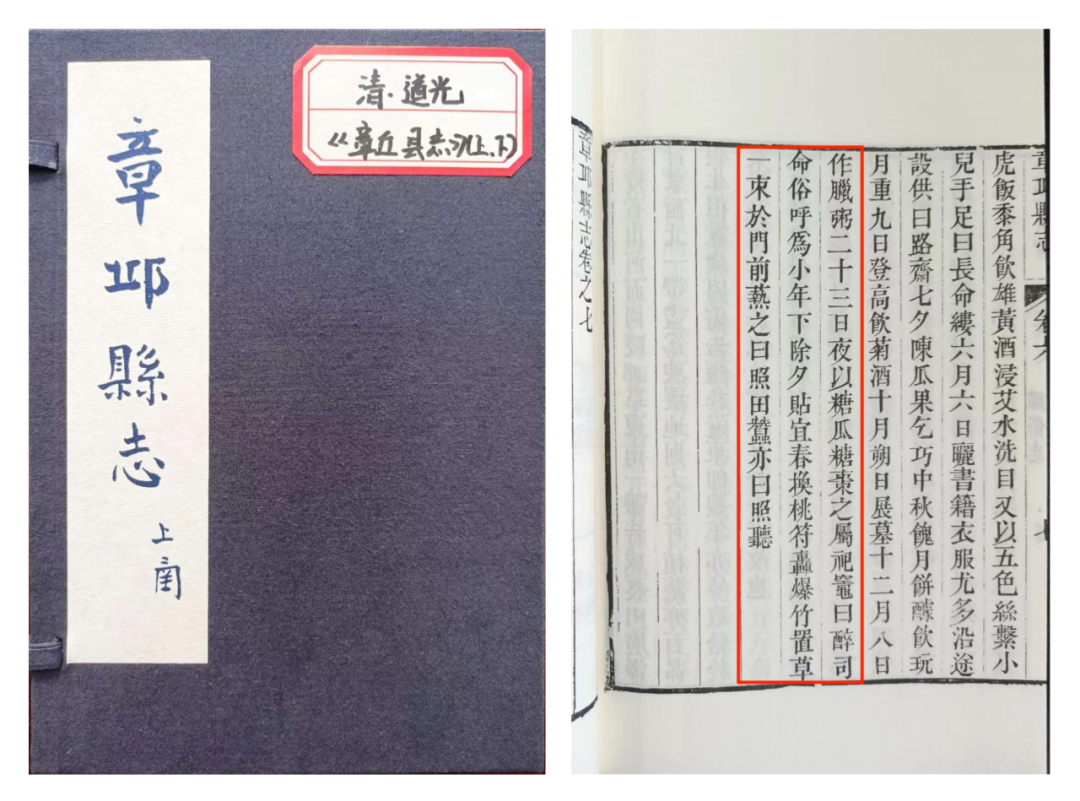 章邱縣志
上函
清·道光
《章丘县志》(上、下)
章邱縣志 卷六 七
虎飯黍角飲雄黃酒浸艾水洗目又以五色絲繫小
兒手足曰長命縷六月六日曬書籍衣服尤多沿途
設供曰路齋七夕陳瓜果乞巧中秋餽月餅醵飲玩
月重九日登高飲菊酒十月朔日展墓十二月八日
作臘粥二十三日夜以糖瓜糖棗之屬祀竈曰醉司
命俗呼爲小年下除夕貼宜春換桃符轟爆竹置草
一束於門前爇之曰照田蠶亦曰照聽
章邱縣志卷之七